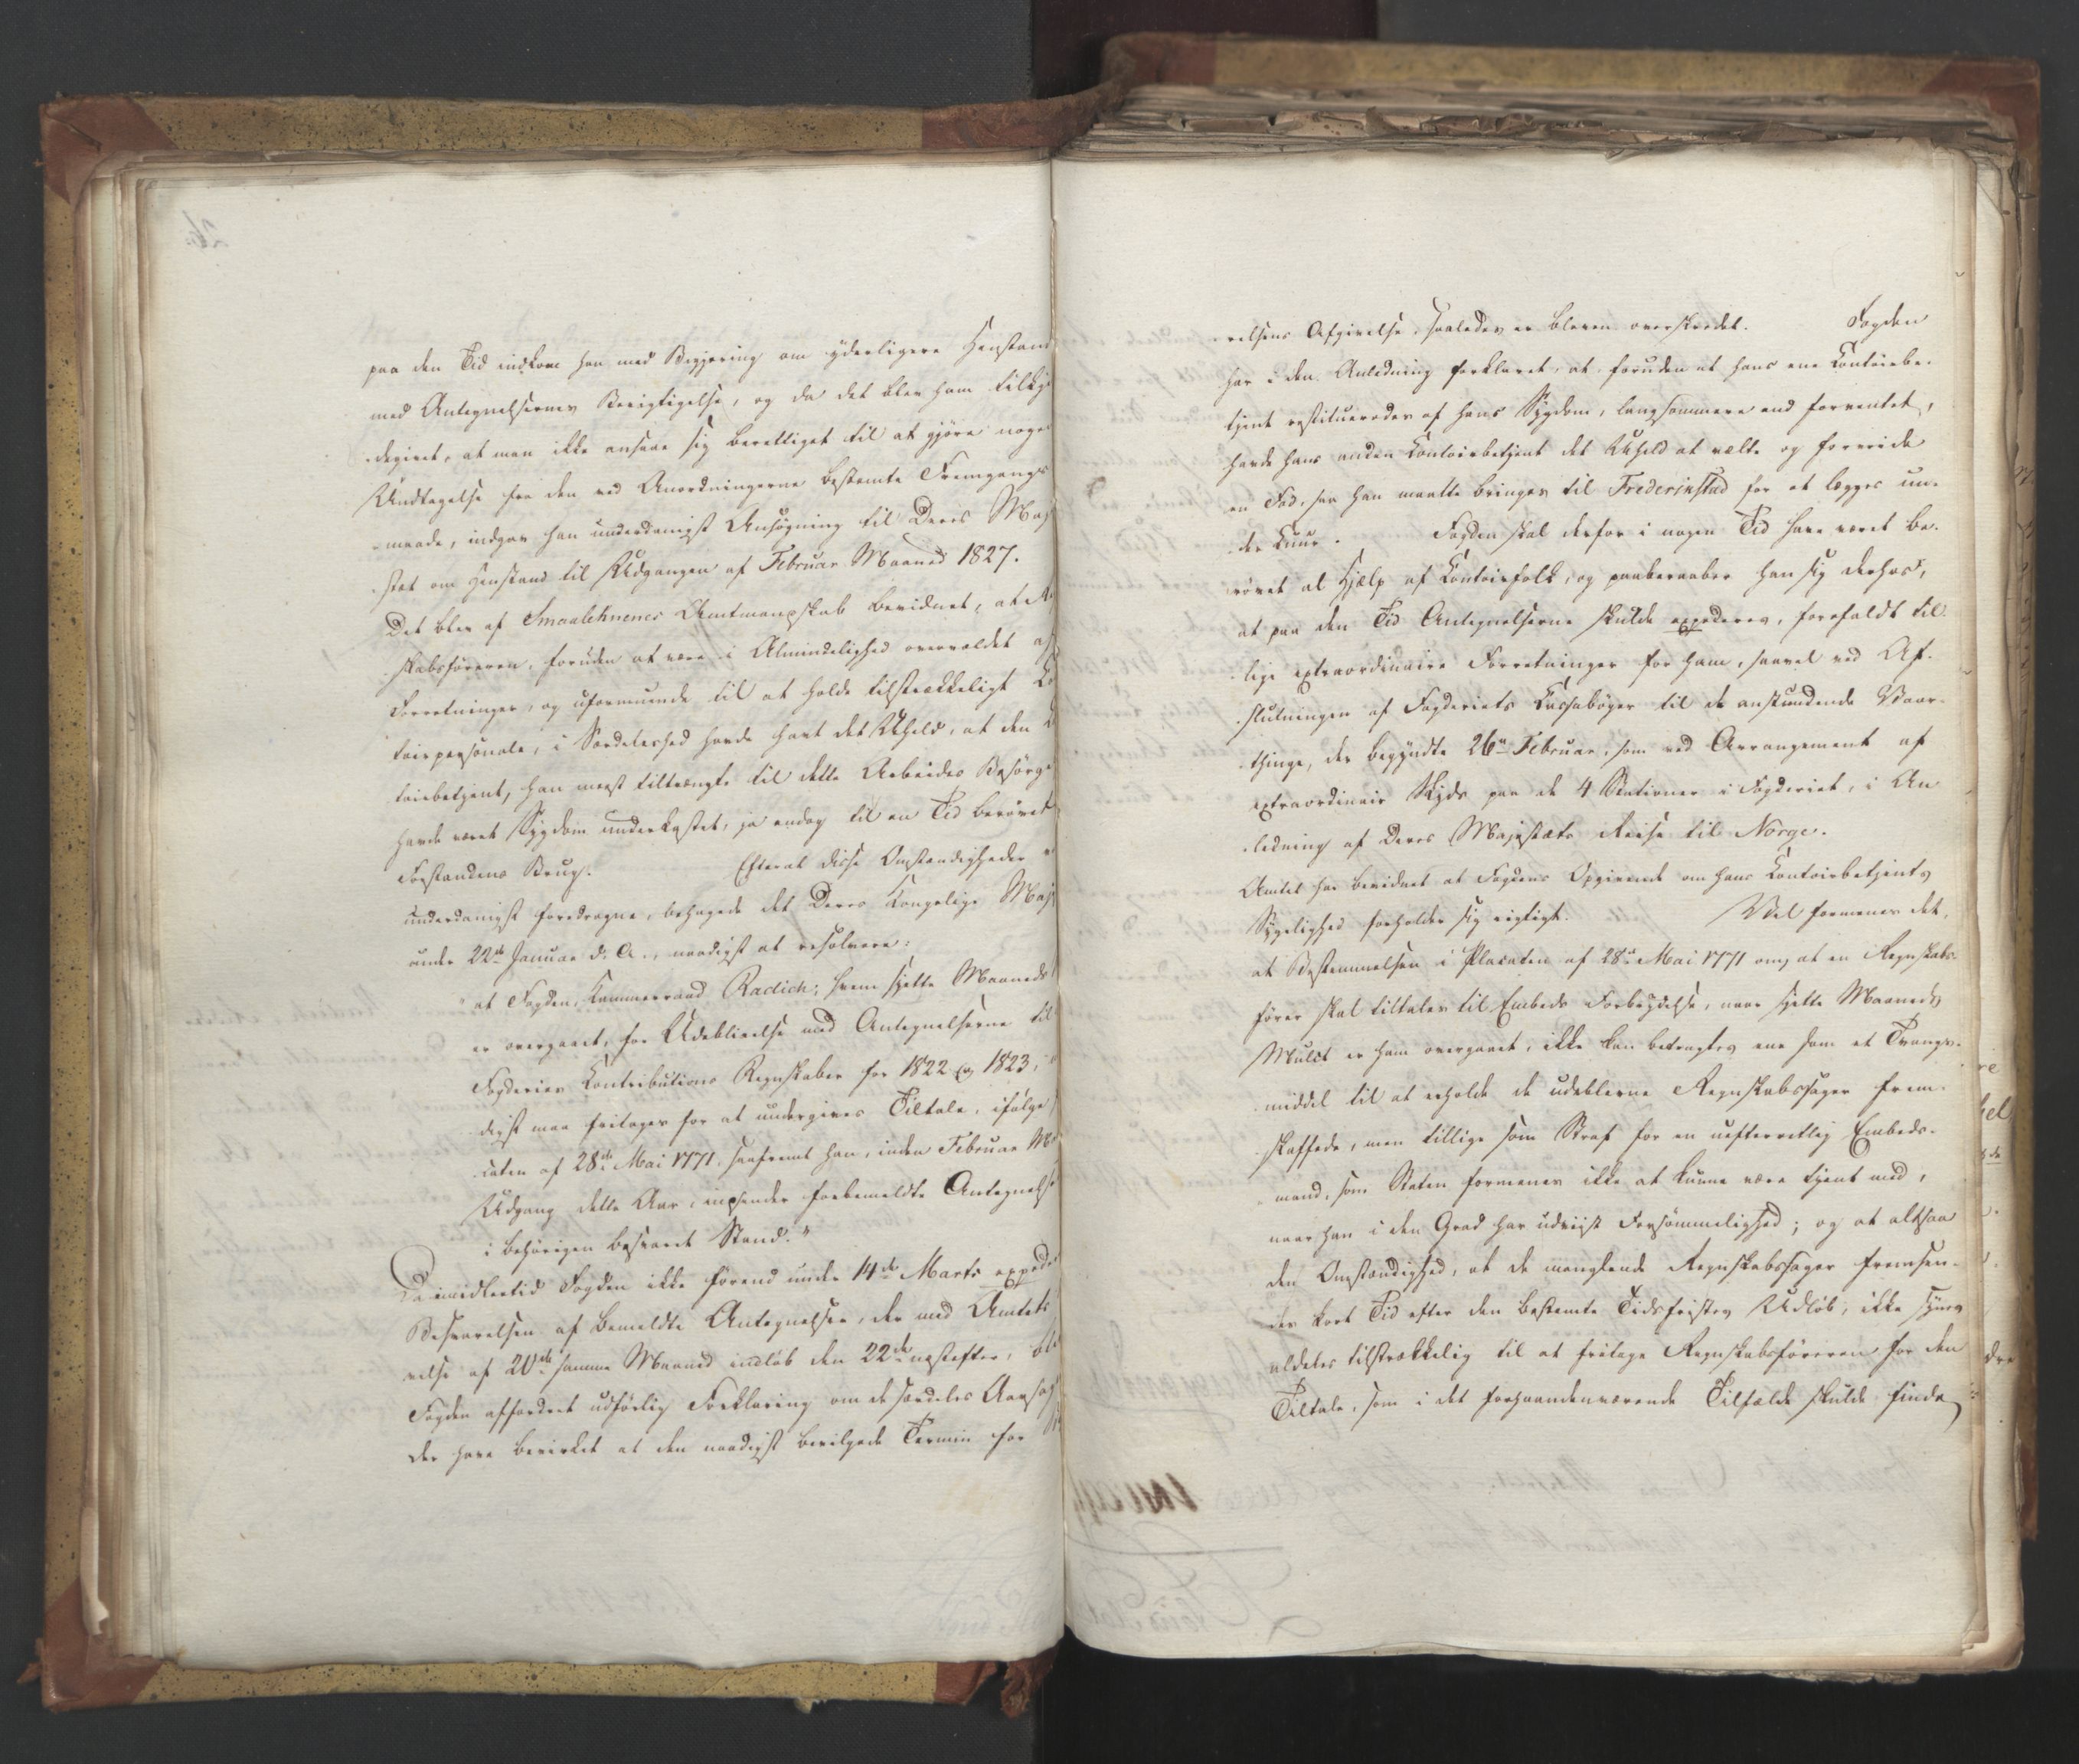 paa den Tid indkom han med Begjæring om yderligere Henstand
med Antegnelsernes Berigtigelse, og da det blev ham tilkje-
-degivet, at man ikke ansaae sig berettiget til at gjöre nogen
Undtagelse fra den ved Anordningerne bestemte Fremgangs
-maade, indgav han underdanigst Ansögning til Deres Maj
-stæt om Henstand til Udgangen af Februar Maaned 1827.
Det blev af Smaalehnenes Amtmandskab bevidnet, at
skabsföreren, foruden at være i Almindelighed overvældet af
Forretninger, og uformuende til at holde tilstrækkeligt
toirpersonale, i Særdeleshed havde havt det Uheld, at den
toirbetjent, han meest tiltrængte til dette Arbeides Besörge
havde været Sygdom underkastet, ja endog til en Tid berövet
Forstandens Brug. Efterat disse Omstændigheder
underdanigst foredragne, behagede det Deres Kongelige Maj
under 22de Januar d. A., naadigst at resolvere:
"at Fogden, Kammerraad Radich, hvem sjette Maaneds
er overgaaet, for Udeblivelse med Antegnelserne til
Fogderiets Contributions Regnskaber for 1822 og 1823,
digst maa fritages for at undergives Tiltale, ifölge
caten af 28de Mai 1771, saafremt han, inden Februar
Udgang dette Aar, indsender forbemeldte Antegnelse
i behörigen besvaret Stand."
Da imidlertid Fogden ikke förend under 14de Marts exped
Besvarelsen af bemeldte Antegnelser, der med Amtets
velse af 20de samme Maaned indlöb den 22de næstefter,
Fogden affordret udförlig Forklaring om de særdeles Aarsag
der have bevirket at den naadigst bevilgede Termin for
-velsens Afgivelse, saaledes er bleven overskredet. Fogden
har i den Anledning forklaret, at foruden at hans ene Contoirbe-
tjent restitueredes af hans Sygdom, langsommere end forventet,
havde hans anden Contoirbetjent det Uheld at vælte og forvride
en Fod, saa han maatte bringes til Frederikstad for at lægges un-
der Cuur. Fogden skal derfor i nogen Tid have været be-
rövet al Hjælp af Contoirfolk, og paaberaaber han sig derhos,
at paa den Tid Antegnelserne skulde expederes, forefaldt til-
lige extraordinaire Forretninger for ham, saavel ved Af-
slutningen af Fogderiets Cassabøger til de anstundende Vaar-
thinge, der begyndte 26de Februar, som ved Arrangement af
extraordinair Skyds paa de 4 Stationer i Fogderiet, i An
ledning af Deres Majestæts Reise til Norge.
Amtet har bevidnet at Fogdens Opgivende om hans Contoirbetjents
Sygelighed forholder sig rigtigt. Vel formenes det,
at Bestemmelsen i Placaten af 28de Mai 1771 om, at en Regnskabs-
förer skal tiltales til Embeds Forbrydelse, naar sjette Maaneds
Mulct er ham overgaaet, ikke kan betragtes ene som et Tvangs-
middel til at erholde de udeblevne Regnskabssager frem-
skaffede, men tillige som Straf for en uefterretlig Embeds-
mand, som Staten formenes ikke at kunne være tjent med,
naar han i den Grad har udviist Forsömmelighed; og at altsaa
den Omstændighed, at de manglende Regnskabssager fremsen-
des kort Tid efter den bestemte Tidsfristes Udlöb, ikke synes
aldeles tilstrækkelig til at fritage Regnskabsföreren for den
Tiltale, som i det forhaandenværende Tilfælde skulde finde